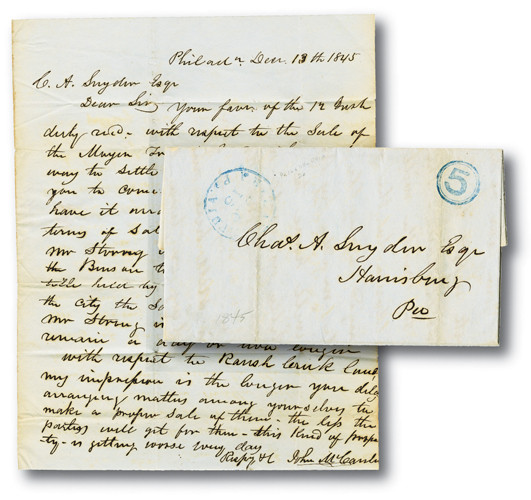 Philada Decr 13th 1845
C. A. Snyder Esqr
Dear Sir Your favr of the 12 Inst
duly recd - with respect to the Sale of
the Mayer
way to settle
you to come
have it arra
terms of Sal
Mr Strong
the
held by
the city the Sa
Mr Strong is
remain a day or two longer
with respect to Raush Creek land
my impression is the longer you delay
arranging matters among yourselves to
make a proper Sale of them - the less the
parties will get for them - this kind of proper
ty - is getting worse every day
Respy &c John McCanles
PHILA
15
5
Chas. A. Snyder Esqr
Harrisburg
Pa
1845